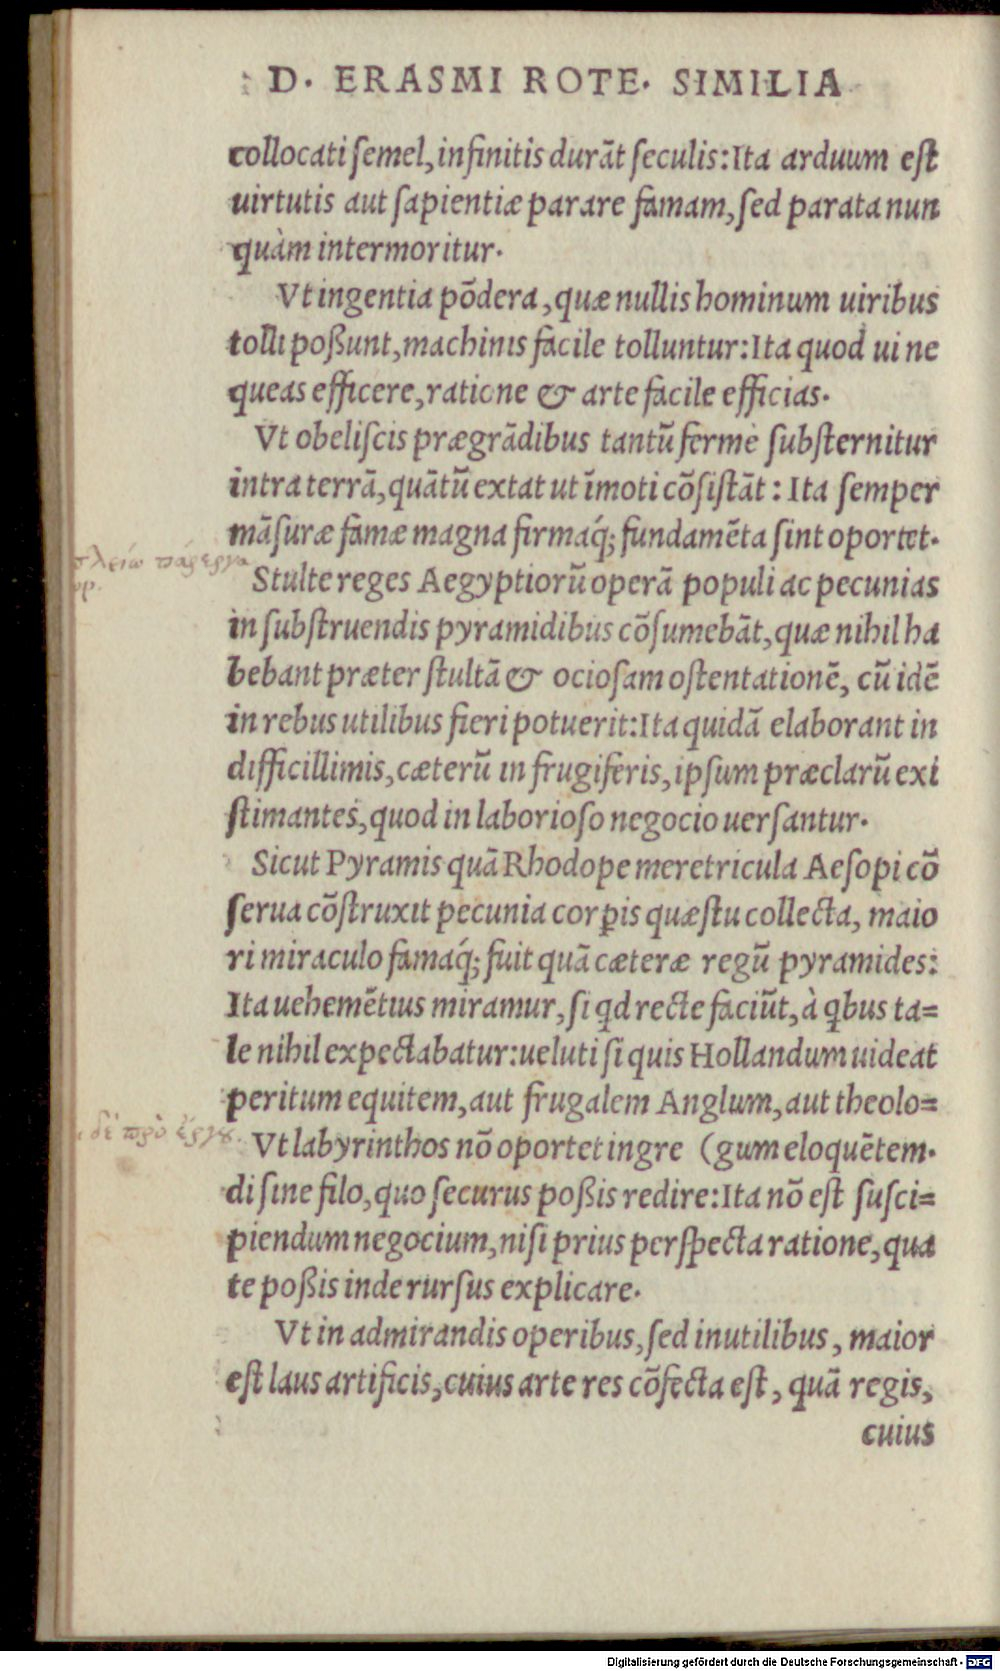 D. ERASMI ROTE. SIMILIA
collocati ſemel, infinitis durāt ſeculis: Ita arduum eſt
uirtutis aut ſapientiæ parare famam, ſed parata nun
quàm intermoritur.
Vt ingentia põdera, quæ nullis hominum uiribus
tolli poßunt, machinis facile tolluntur: Ita quod ui ne
queas efficere, ratione & arte facile efficias.
Vt obeliſcis prægrādibus tantũ fermè ſubſternitur
intra terrā, quātũ extat ut ĩmoti cõſiſtāt: Ita ſemper
māſuræ famæ magna firmaq́; fundamēta ſint oportet.
πλείω πάρεργα
Stulte reges Aegyptiorũ operā populi ac pecunias
in ſubſtruendis pyramidibus cõſumebāt, quæ nihil ha
bebant præter ſtultā & ocioſam oſtentationē, cũ idē
in rebus utilibus fieri potuerit: Ita quidā elaborant in
difficillimis, cæterũ in frugiferis, ipſum præclarũ exi
ſtimantes, quod in laborioſo negocio uerſantur.
Sicut Pyramis quā Rhodope meretricula Aeſopi cõ
ſerua cõſtruxit pecunia corꝑis quæſtu collecta, maio
ri miraculo famaq́; fuit quā cæteræ regũ pyramides:
Ita uehemētius miramur, ſi qd recte faciũt, à qbus ta=
le nihil expectabatur: ueluti ſi quis Hollandum uideat
peritum equitem, aut frugalem Anglum, aut theolo=
δὲ πρὸ ἔργου.
Vt labyrinthos nõ oportet ingre (gum eloquētem.
di ſine filo, quo ſecurus poßis redire: Ita nõ eſt ſuſci=
piendum negocium, niſi prius perſpecta ratione, qua
te poßis inde rurſus explicare.
Vt in admirandis operibus, ſed inutilibus, maior
eſt laus artificis, cuius arte res cõfecta eſt, quā regis,
cuius
Digitalisierung gefördert durch die Deutsche Forschungsgemeinschaft - DFG